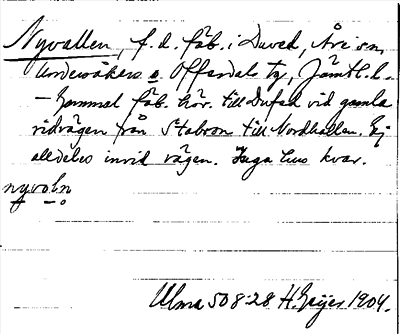 Nyvallen, f. d. fäb. i Duved, Åre sn,
Undersåkers o. Offerdals tg, Jämtl. l.
– Gammal fäb. hör. till Dufed vid gamla
ridvägen från Stabron till Nordhallen. Ej
alldeles invid vägen. Inga hus kvar.
nyvoḷn
Ulma 508:28 H. Geijer 1904.